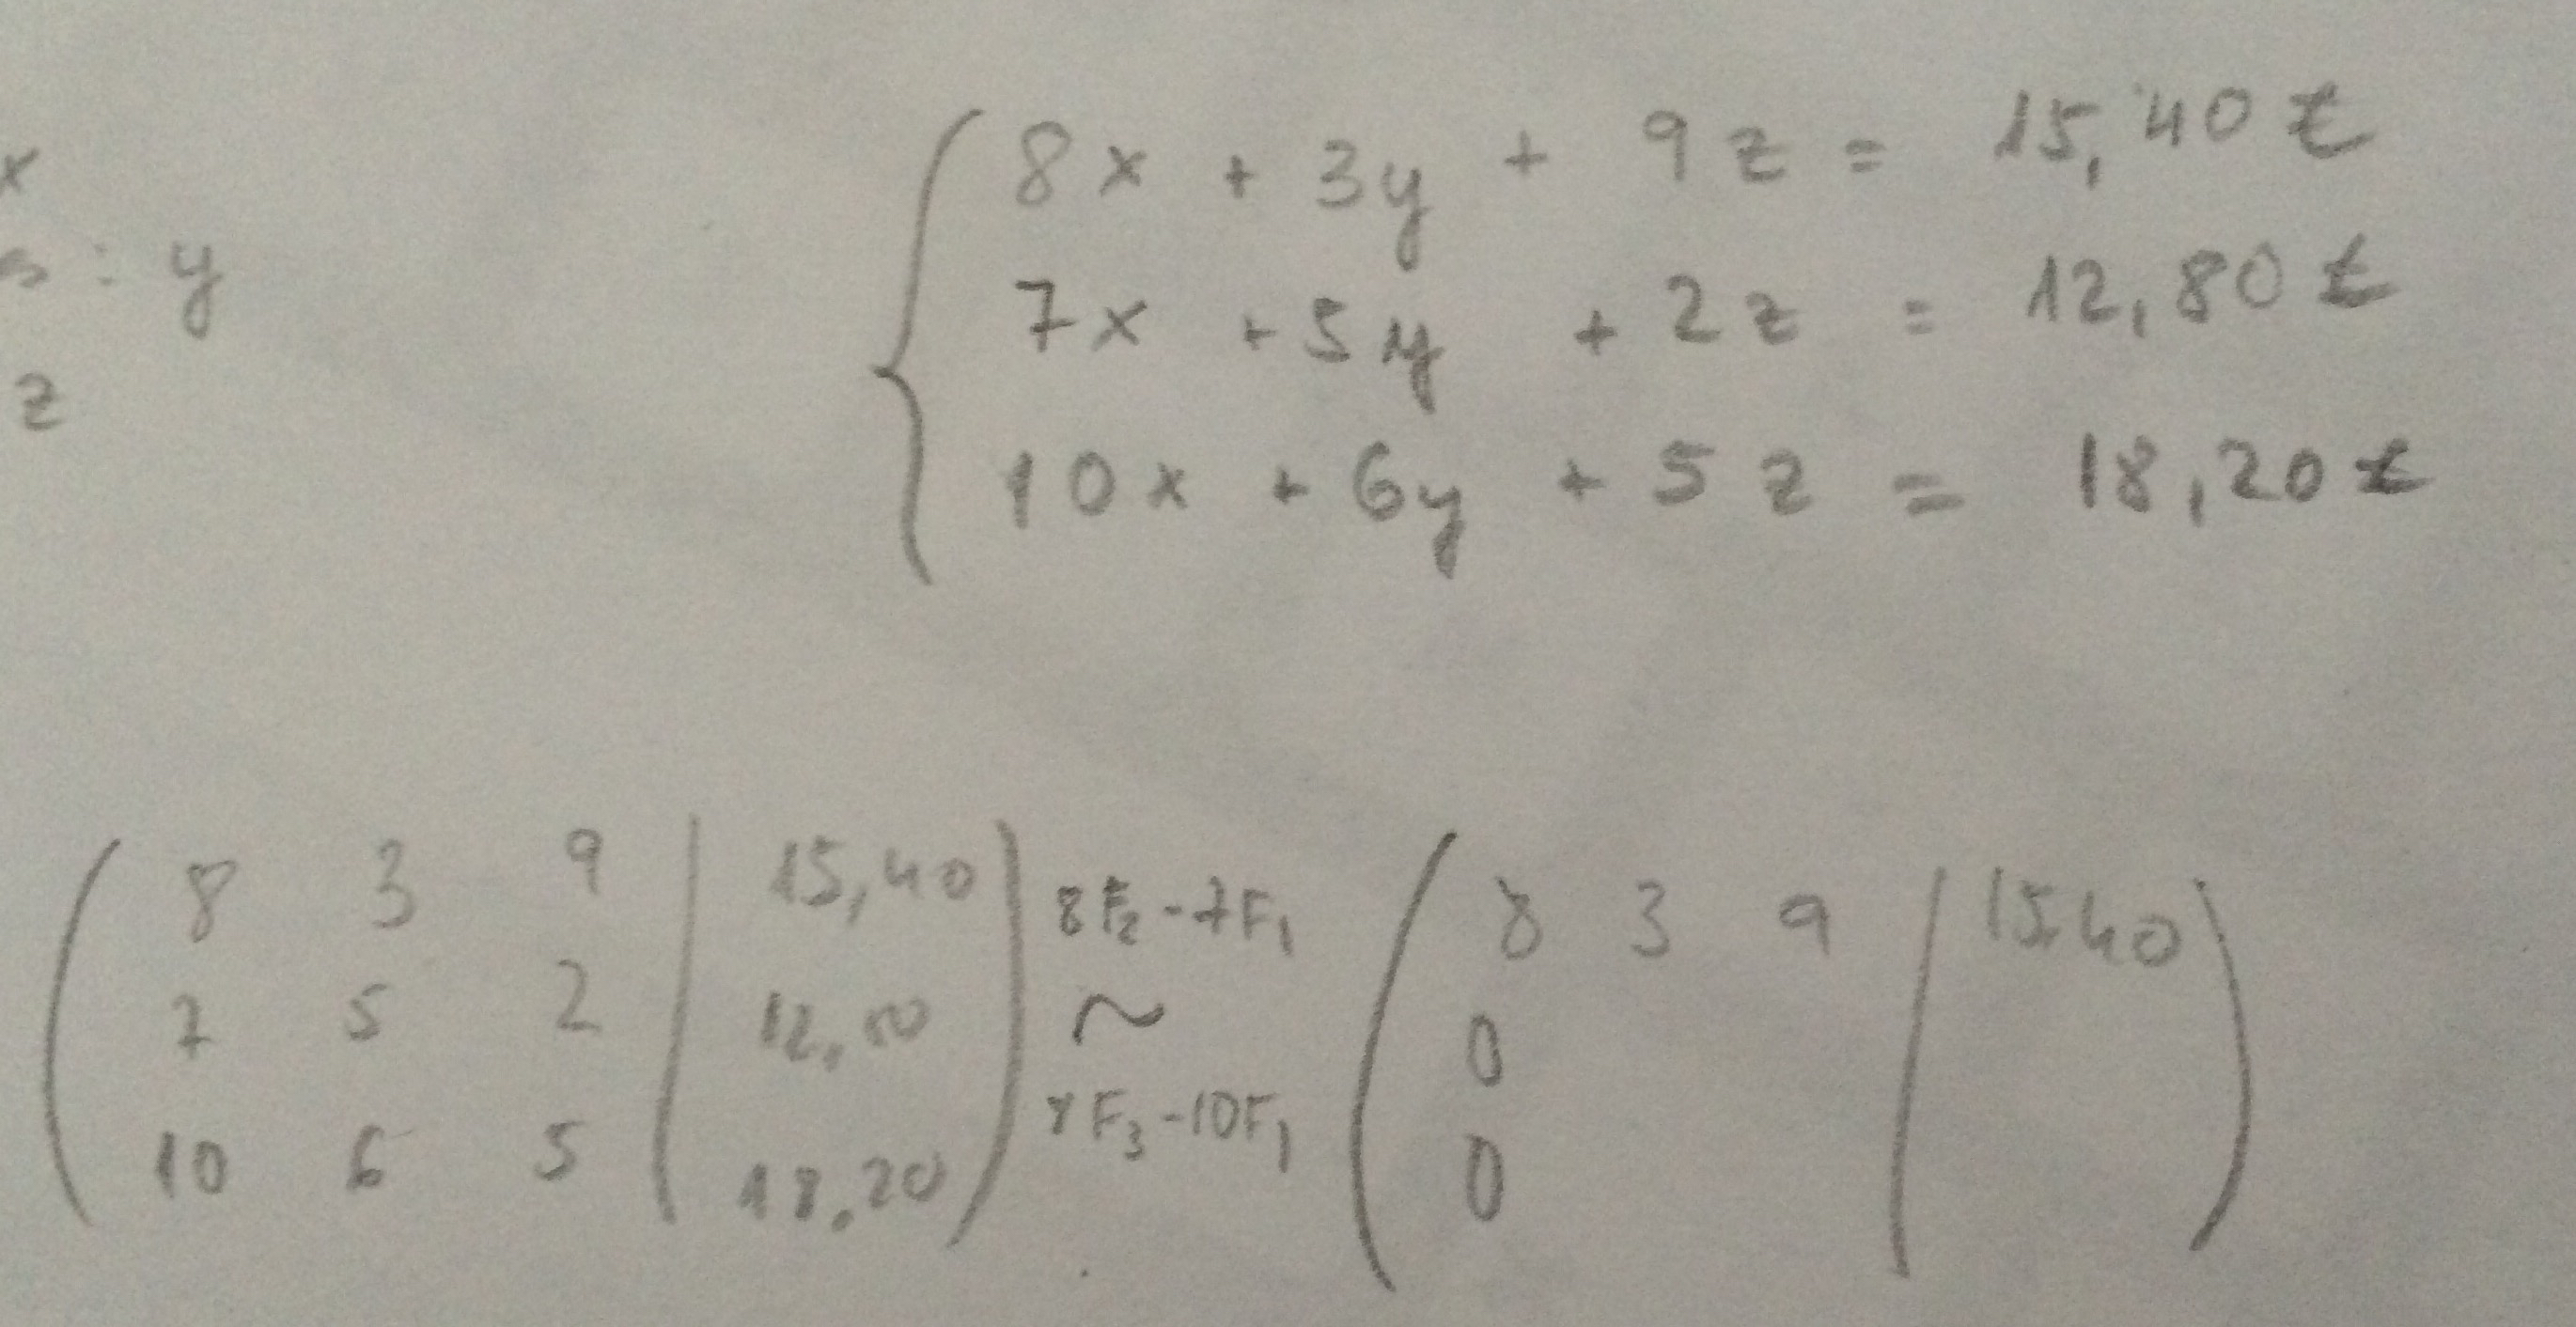 x
s : y
z
8x + 3y + 9z = 15,40 €
7x + 5y + 2z = 12,80 €
10x + 6y + 5z = 18,20 €
8 3 9 | 15,40
7 5 2 | 12,80
10 6 5 | 18,20
8F₂ - 7F₁
~
8F₃ - 10F₁
8 3 9 | 15,40
0
0